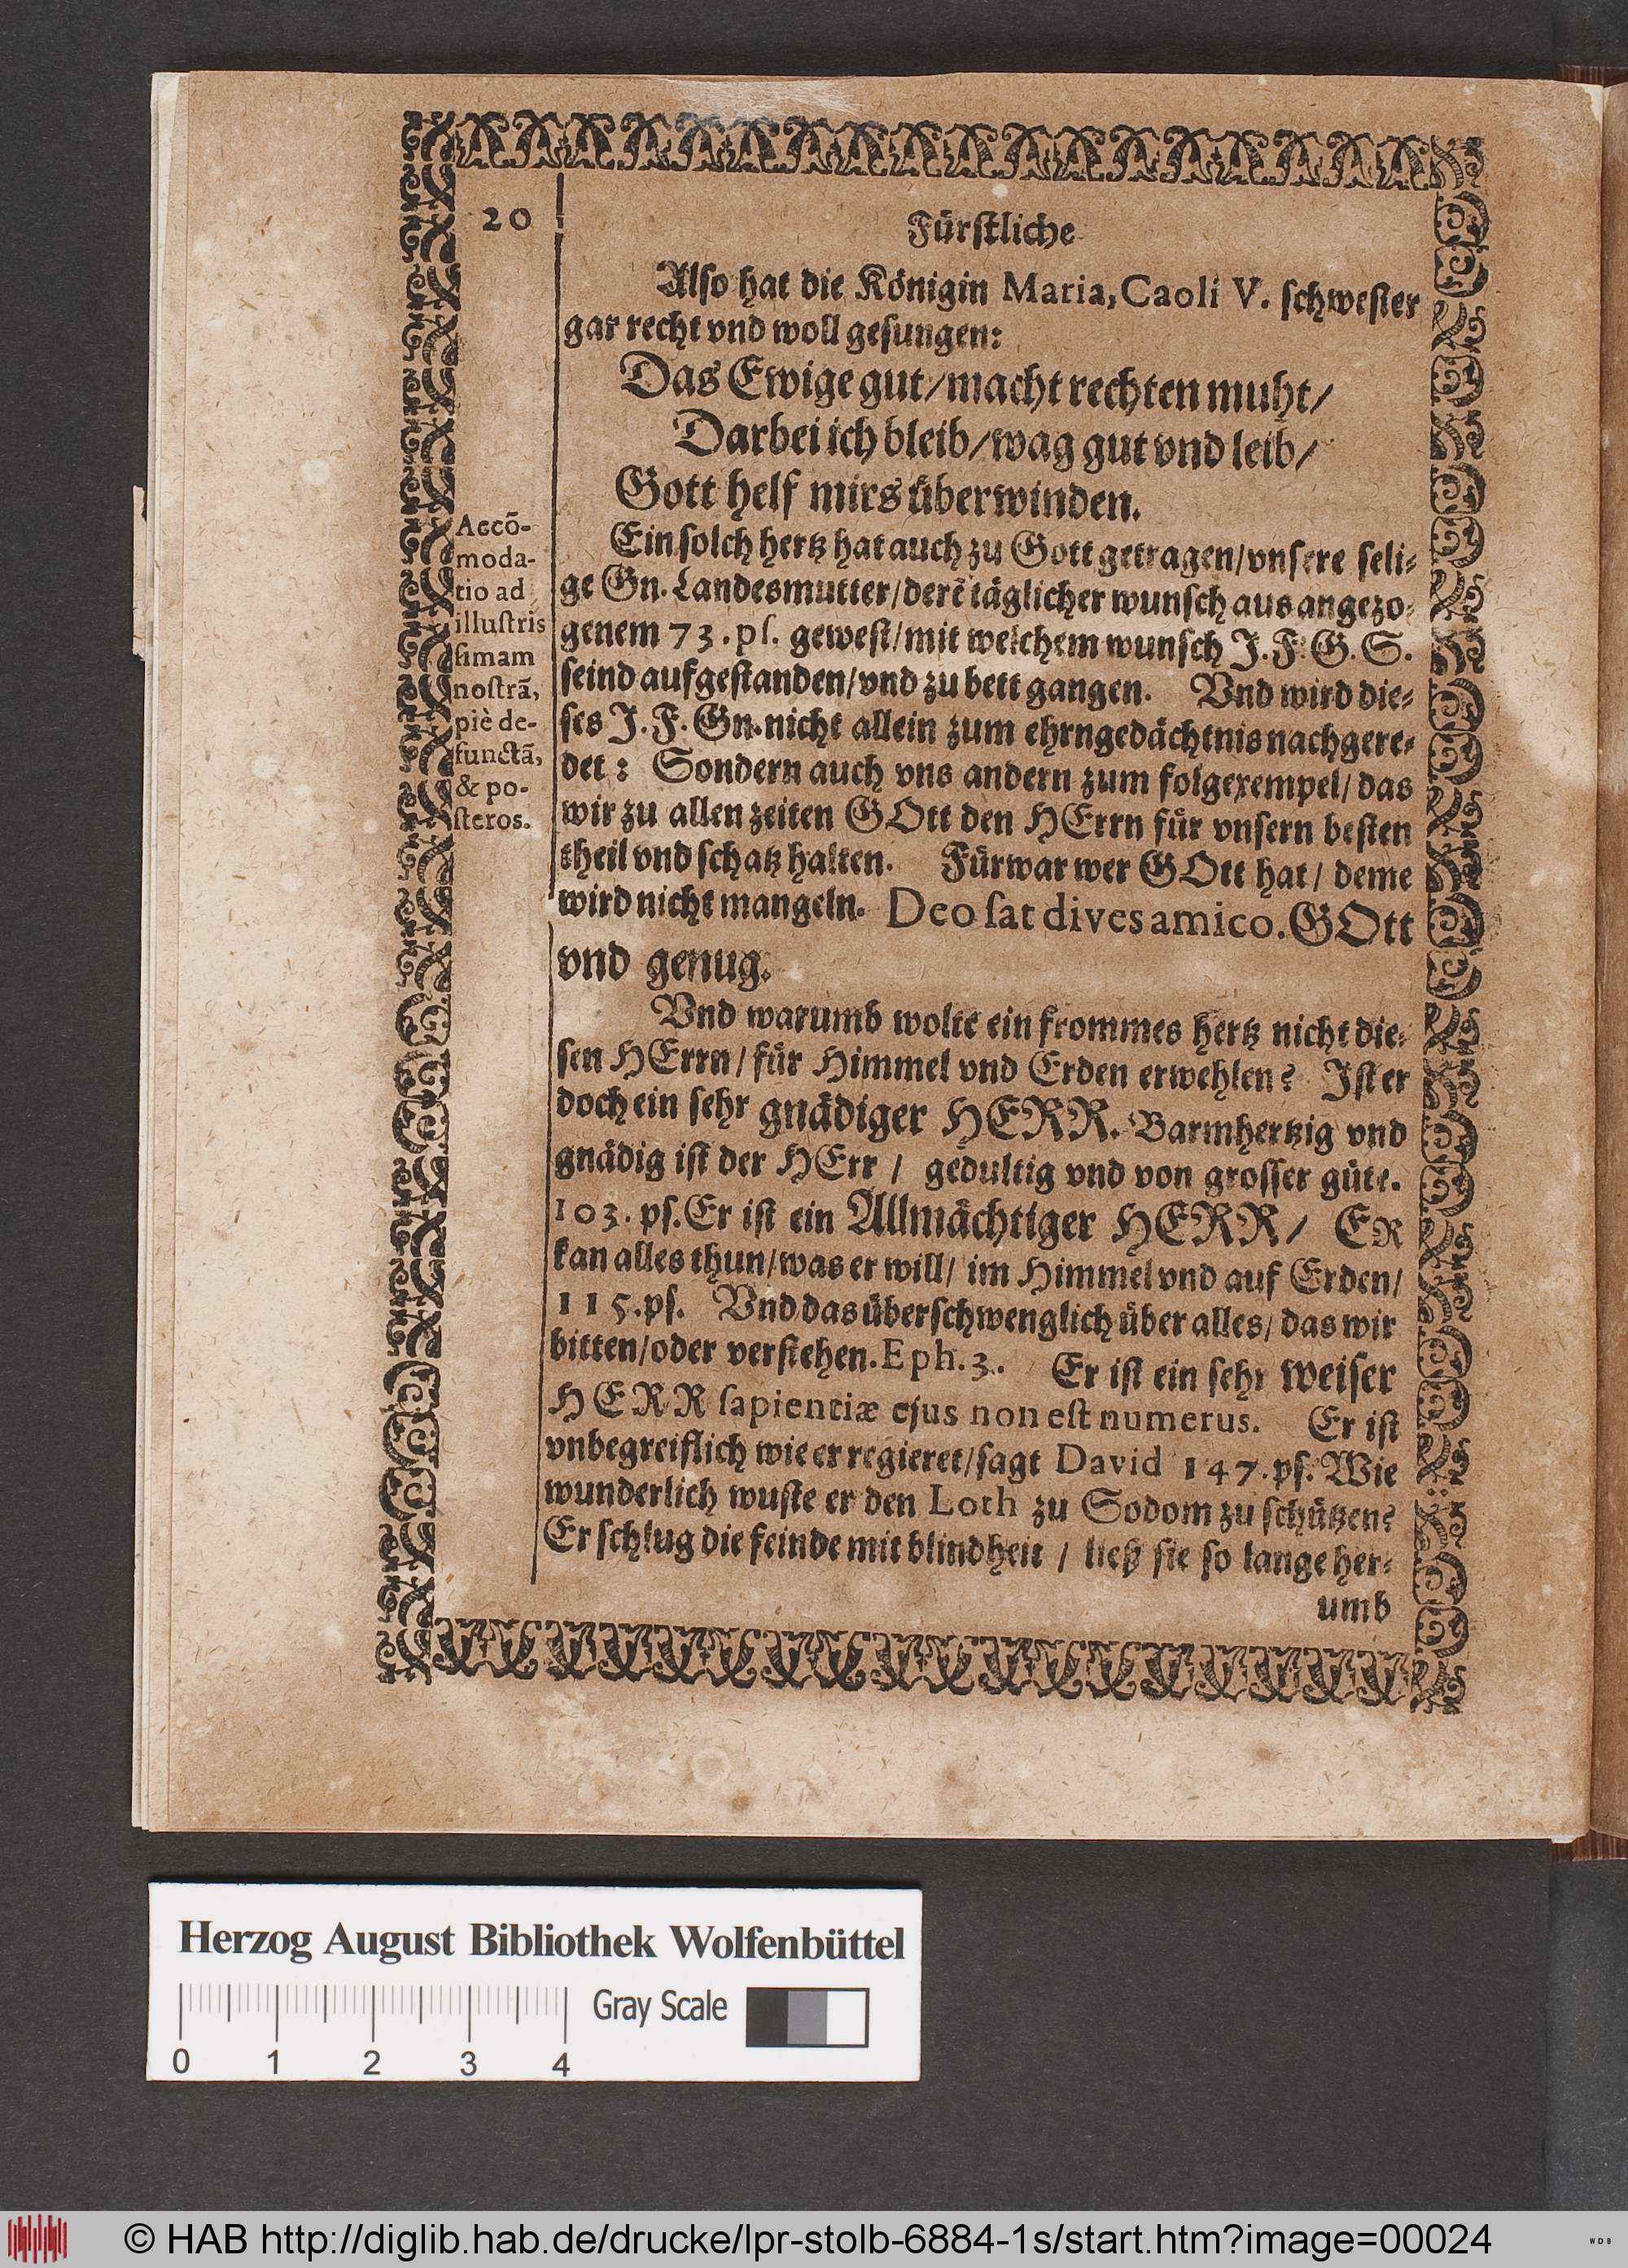 20
Fürstliche
Also hat die Königin Maria, Caoli V. schwester
gar recht vnd woll gesungen:
Das Ewige gut/macht rechten muht/
Darbei ich bleib/wag gut vnd leib/
Gott helf mirs überwinden.
Ein solch hertz hat auch zu Gott getragen/vnsere seli-
ge Gn. Landesmutter/derē täglicher wunsch aus angezo-
genem 73. ps. gewest/mit welchem wunsch J. F. G. S.
seind aufgestanden/vnd zu bett gangen. Vnd wird die-
ses J. F. Gn. nicht allein zum ehrngedächtnis nachgere-
det: Sondern auch vns andern zum folgexempel/ das
wir zu allen zeiten GOtt den HErrn für vnsern besten
theil vnd schatz halten. Fürwar wer GOtt hat/ deme
wird nicht mangeln. Deo sat dives amico. GOtt
vnd genug.
Vnd warumb wolte ein frommes hertz nicht die-
sen HErrn/ für Himmel vnd Erden erwehlen? Ist er
doch ein sehr gnädiger HERR. Barmhertzig vnd
gnädig ist der HErr / gedultig vnd von grosser güte.
103. ps. Er ist ein Allmächtiger HERR/ ER
kan alles thun/was er will/ im Himmel vnd auf Erden/
115. ps. Vnd das überschwenglich über alles/ das wir
bitten/oder verstehen. Eph. 3. Er ist ein sehr weiser
HERR sapientiæ ejus non est numerus. Er ist
vnbegreiflich wie er regieret/sagt David 147. ps. Wie
wunderlich wuste er den Loth zu Sodom zu schützen?
Er schlug die feinde mit blindheit / ließ sie so lange her-
umb
Accō-
moda-
tio ad
illustris
simam
nostrā,
piè de-
functā,
& po-
steros.
Herzog August Bibliothek Wolfenbüttel
Gray Scale
0 1 2 3 4
© HAB http://diglib.hab.de/drucke/lpr-stolb-6884-1s/start.htm?image=00024
WDB